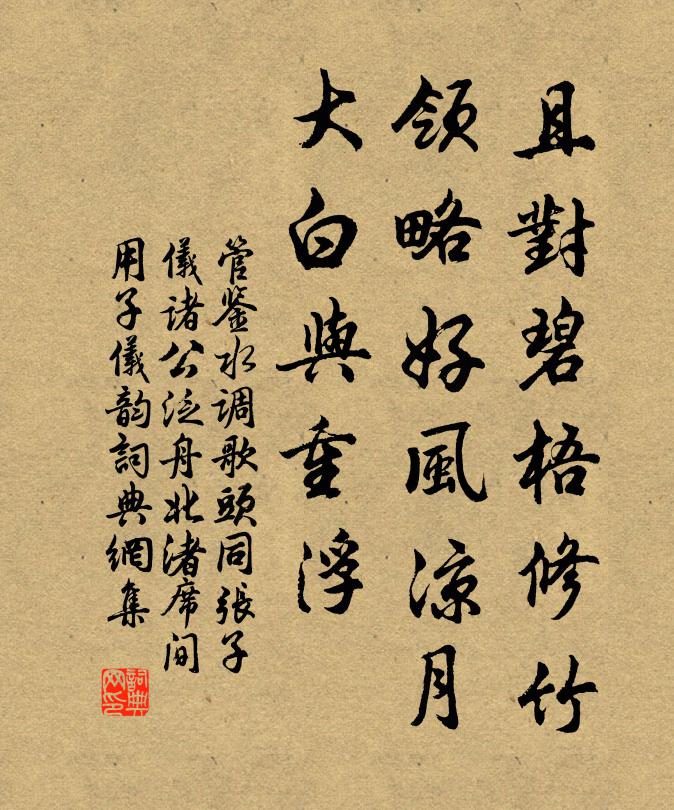 且對碧梧修竹
領略好風涼月
大白與重浮
管鉴水调歌頭同張子
儀諸公泛舟北渚席间
用子儀韵詞典網集
詞典网印